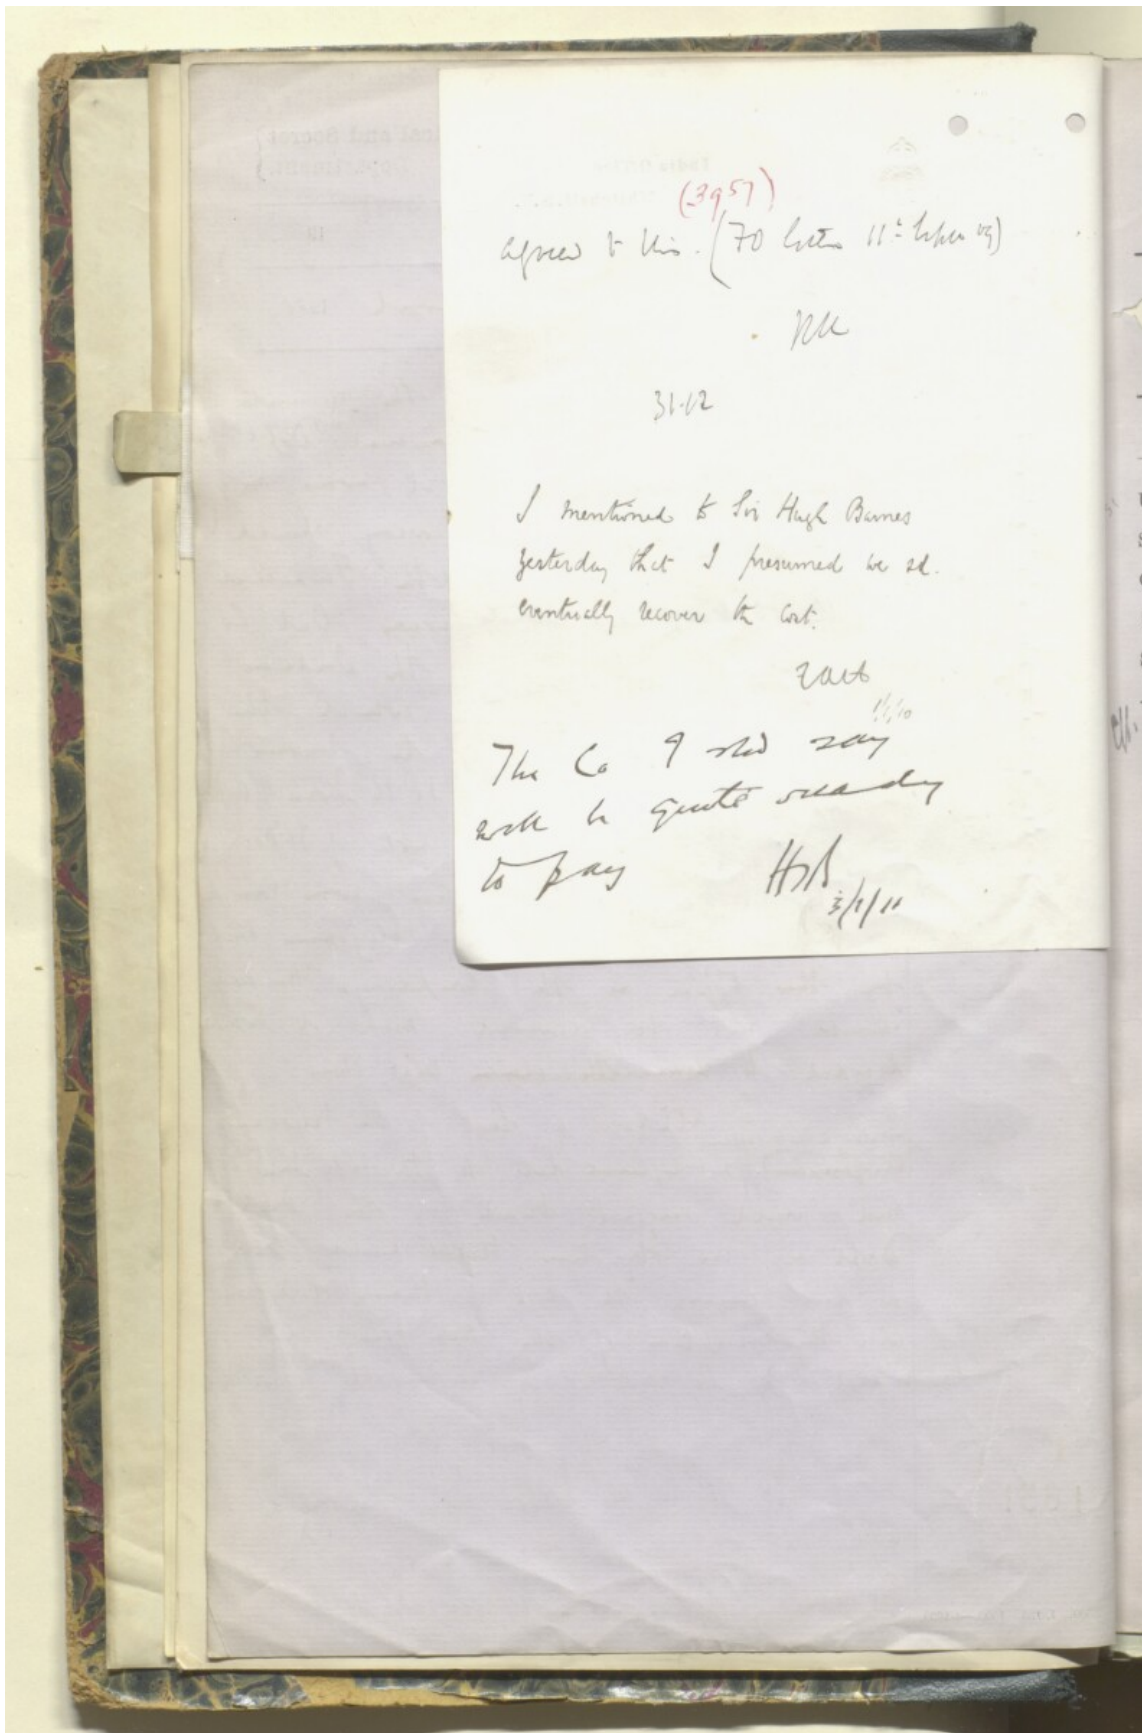 (3957)
agreed to this. (70 letter 11th Septr 09)
31.12
I mentioned to Sir Hugh Barnes
yesterday that I presumed we sd.
eventually recover the cost.
1/1/10
The Co I shd say
will be quite ready
to pay
HSB
3/1/10